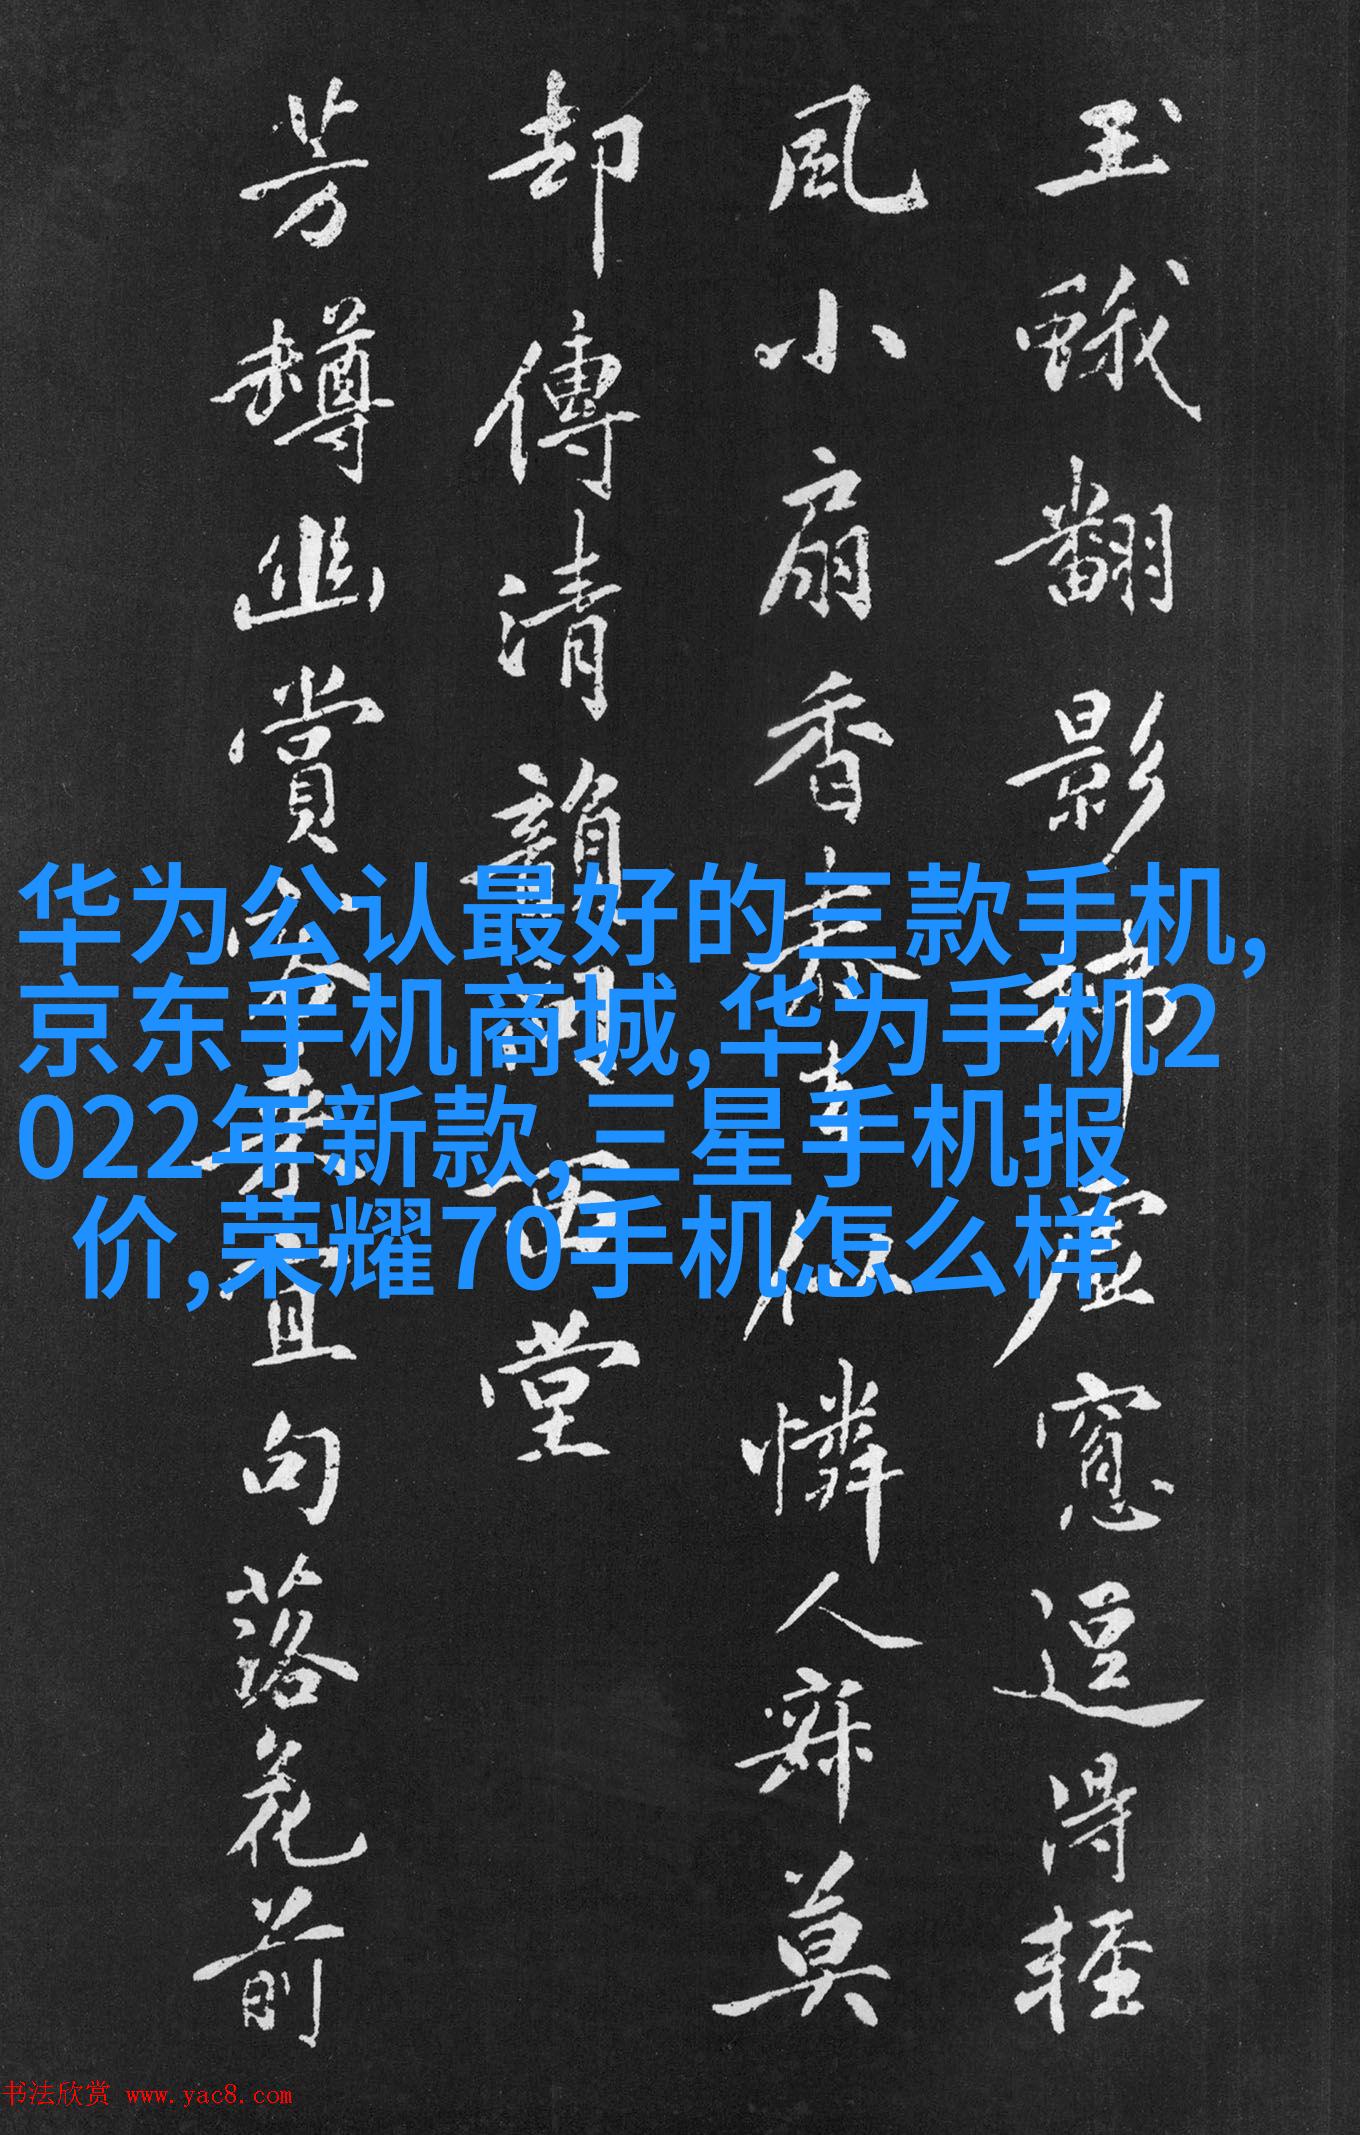 玉蛾翻影虛窻逗得輕
風小扇香憐人寐莫
却傳清韻西堂
芳樽幽賞句落花前
华为公认最好的三款手机,
京东手机商城,华为手机2
022年新款,三星手机报
价,荣耀70手机怎么样
书法欣赏 www.yac8.com